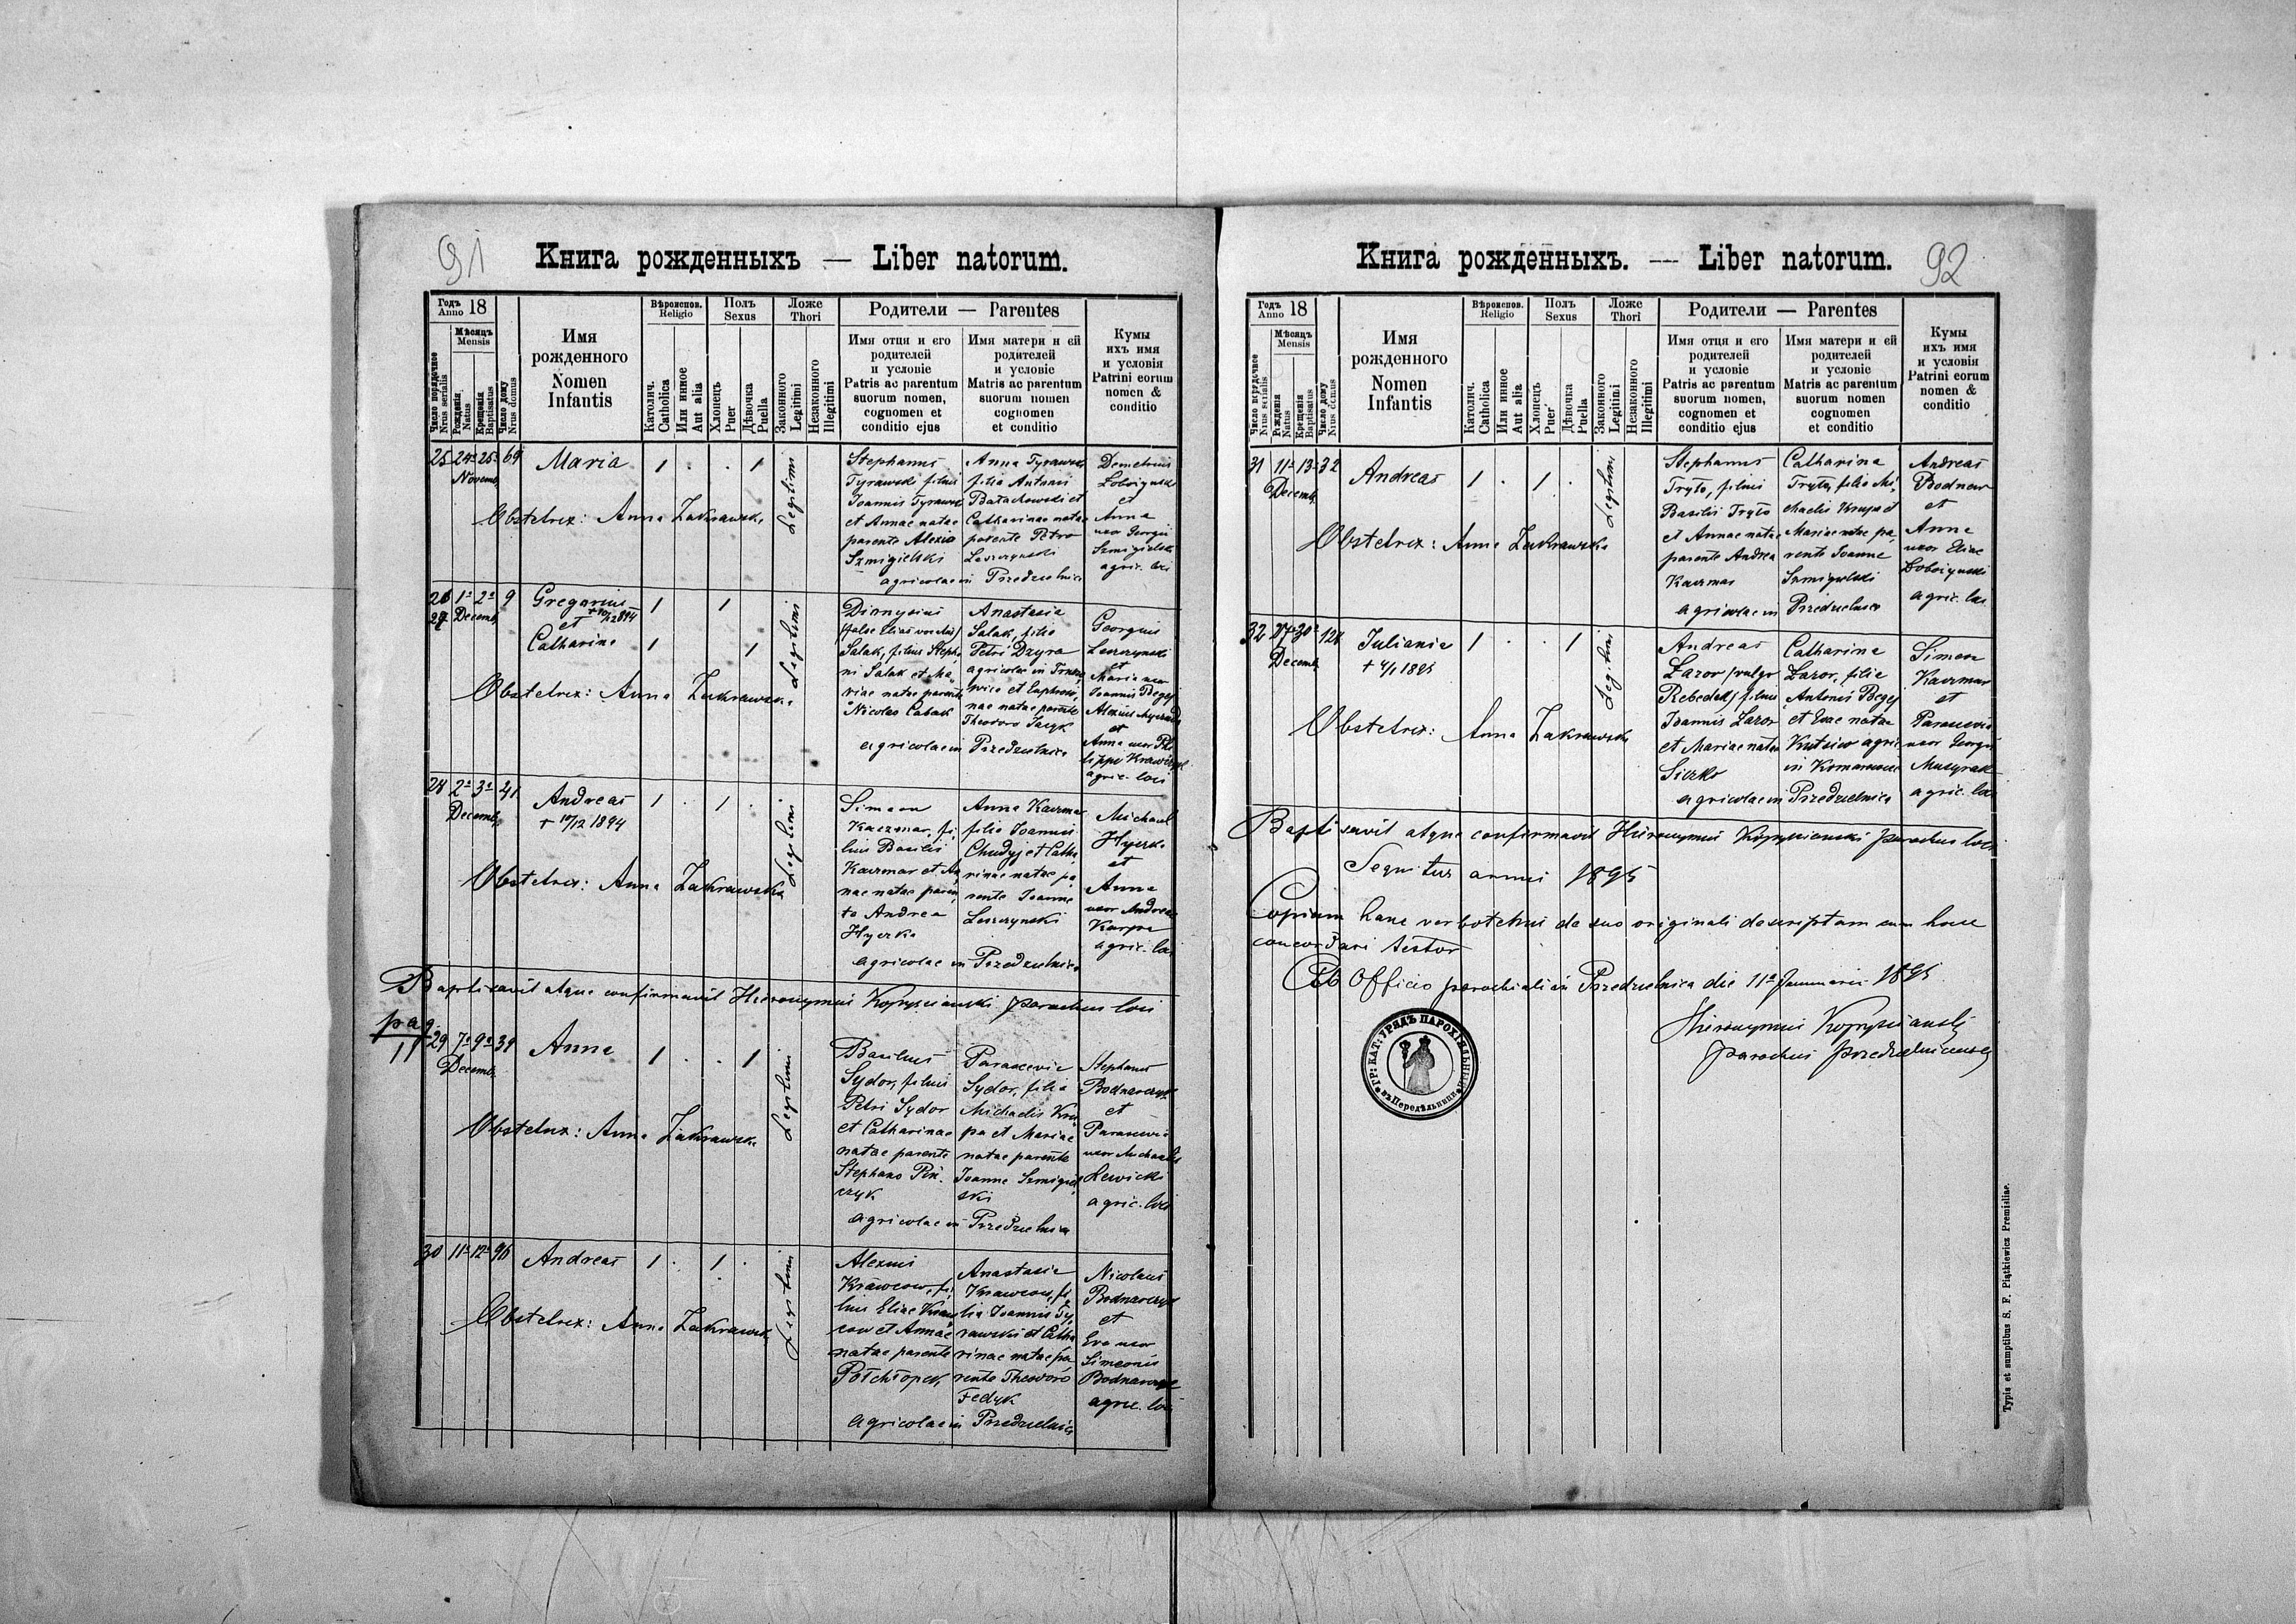 91
Книга рожденныхъ — Liber natorum.
Годъ Anno 18
Мѣсяцъ Mensis
Число порядочное Nrus serialis
Рожденія Natus
Крещенія Baptisatus
Число дому Nrus domus
Имя рожденного Nomen Infantis
Вѣроиспов. Religio
Католич. Catholica
Или инное Aut alia
Полъ Sexus
Хлопецъ Puer
Дѣвочка Puella
Ложе Thori
Законного Legitimi
Незаконного Illegitimi
Родители — Parentes
Имя отця и его
родителей
и условіе
Patris ac parentum
suorum nomen,
cognomen et
conditio ejus
Имя матери и ей
родителей
и условіе
Matris ac parentum
suorum nomen
cognomen
et conditio
Кумы
ихъ имя
и условія
Patrini eorum
nomen &
conditio
25 24 25 69 Maria 1 . . 1 Legitimi
Novemb.
Obstetrix: Anna Zakrawska
Stephanus
Tyrawski filius
Joannis Tyrawski
et Annae natae
parente Alexio
Szmigielski
Anna Tyrawska
filia Antonii
et
Catharinae natae
parente Petro
Leszczynski
agricolae in Przedzielnica
Demetrius
et
Anna
uxor Georgii
agric. loci
26 1 2 9 Gregorius 1 1 Legitimi
27 Decemb. et
Catharina 1 1
Obstetrix: Anna Zakrawska
Dionysius
Salak, filius Stepha
ni Salak et Ma
riae natae parente
Nicolao Cabak
Anastasia
Salak, filia
Petri Dzyra
agricolae in
et
nae natae parente
Theodoro
agricolae in Przedzielnica
Georgius
Leszczynski
et
Maria uxor
Joannis Begej
Alexius
et
Anna uxor Phi
lippi
agric. loci
28 2 3 41 Andreas 1 . 1 . Legitimi
Decemb. † 10/12 1894
Obstetrix: Anna Zakrawska
Simeon
Kaczmar, fi
lius Basilii
Kaczmar et An
nae natae paren
te Andrea
Hyczka
Anna Kaczmar
filia Joannis
Chudyj et Catha
rinae natae pa
rente Joanne
Leszczynski
agricolae in Przedzielnica
Michael
Hyczka
et
Anna
uxor Andreae
Karpa
agric. loci
Baptisavit atque confirmavit Hieronymus Kopyscianski parochus loci
pag
11
29 7 9 39 Anna 1 . . 1 Legitimi
Decemb.
Obstetrix: Anna Zakrawska
Basilius
Sydor, filius
Petri Sydor
et Catharinae
natae parente
Stephano Pin
czyk
Parascevia
Sydor, filia
Michaelis Kru
pa et Mariae
natae parente
Joanne Szmigiel
ski
agricolae in Przedzielnica
Stephanus
Bodnarczyk
et
Parascevia
uxor Michaelis
Lewicki
agric. loci
30 11 12 96 Andreas 1 . 1 . Legitimi
Obstetrix: Anna Zakrawska
Alexius
Krawcow, fi
lius Eliae Kraw
cow et Annae
natae parente
Anastasia
Krawcow, fi
lia Joannis Ty
rawski et Catha
rinae natae pa
rente Theodoro
Fedyk
agricolae in Przedzielnica
Nicolaus
Bodnarczyk
et
Eva uxor
Simeonis
Bodnarczyk
agric. loci
92
Книга рожденныхъ. — Liber natorum.
Годъ Anno 18
Мѣсяцъ Mensis
Число порядочное Nrus serialis
Рожденія Natus
Крещенія Baptisatus
Число дому Nrus domus
Имя рожденного Nomen Infantis
Вѣроиспов. Religio
Католич. Catholica
Или инное Aut alia
Полъ Sexus
Хлопецъ Puer
Дѣвочка Puella
Ложе Thori
Законного Legitimi
Незаконного Illegitimi
Родители — Parentes
Имя отця и его
родителей
и условіе
Patris ac parentum
suorum nomen,
cognomen et
conditio ejus
Имя матери и ей
родителей
и условіе
Matris ac parentum
suorum nomen
cognomen
et conditio
Кумы
ихъ имя
и условія
Patrini eorum
nomen &
conditio
31 11 13 32 Andreas 1 . 1 . Legitimi
Decemb.
Obstetrix: Anna Zakrawska
Stephanus
Tryto, filius
Basilii Tryto
et Annae natae
parente Andrea
Kaczmar
Catharina
Tryto, filia Mi
chaelis Krupa et
Mariae natae pa
rente Joanne
Szmigielski
agricolae in Przedzielnica
Andreas
Bodnar
et
Anna
uxor Eliae
agric. loci
32 27 30 Juliania 1 . . 1 Legitimi
Decemb. † 4/1 1895
Obstetrix: Anna Zakrawska
Andreas
Lazor (vulgo
filius
Joannis Lazor
et Mariae natae
Siczko
Catharina
Lazor, filia
Antonii Begej
et Evae natae
agric
in
agricolae in Przedzielnica
Simeon
Kaczmar
et
Parascevia
uxor Georgii
agric. loci
Baptisavit atque confirmavit Hieronymus Kopyscianski parochus loci
Sequitur annus 1895
Copiam hanc verbotenus de suo originali descriptam cum hocce
concordari testor
Ab Officio parochiali in Przedzielnica die 11 Januarii 1895
Hieronymus Kopyscianskij
parochus przedzielnicensis
ГР: КАТ: УРЯДЪ ПАРОХІЯЛЬНЫЙ въ Передѣльници
Typis et sumptibus S. F. Piątkiewicz Premisliae.